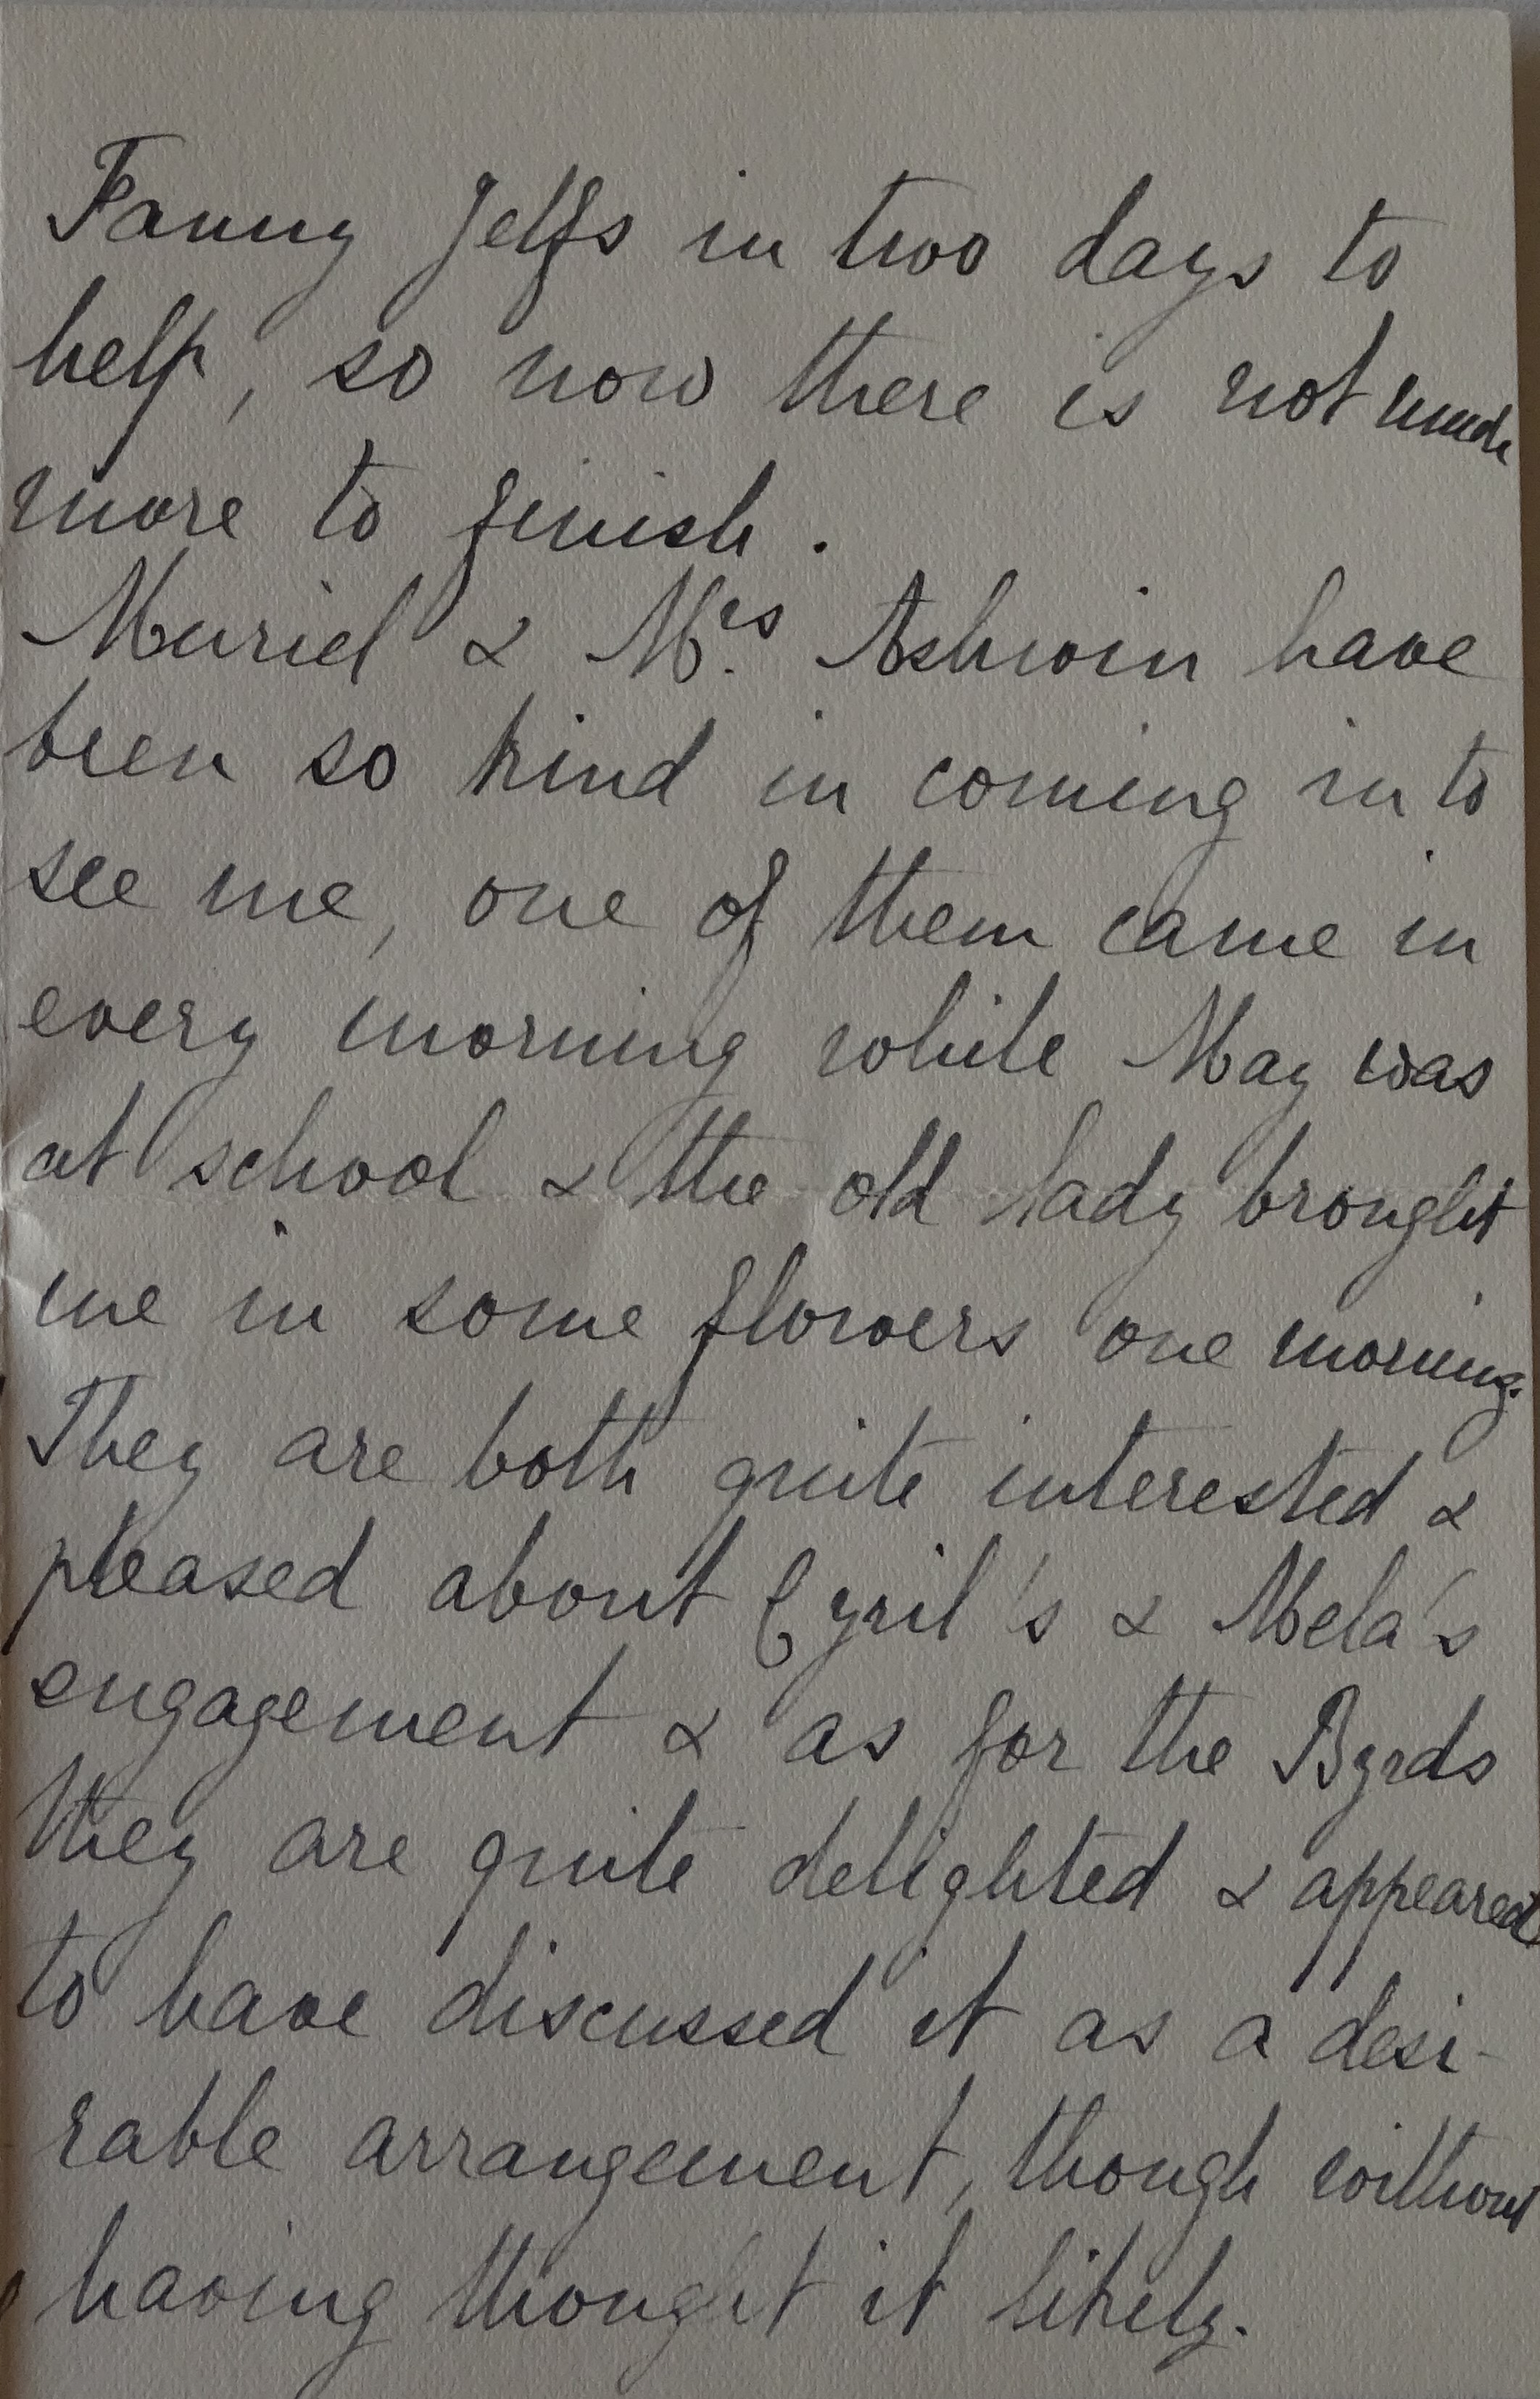 Fanny Jelfs in two days to
help, so now there is not much
more to finish.
Muriel & Mrs. Ashwin have
been so kind in coming in to
see me, one of them came in
every morning while May was
at school & the old lady brought
me in some flowers one morning.
They are both quite interested &
pleased about Cyril's & Mela's
engagement & as for the Byrds
they are quite delighted & appeared
to have discussed it as a desi-
rable arrangement, though without
having thought it likely.